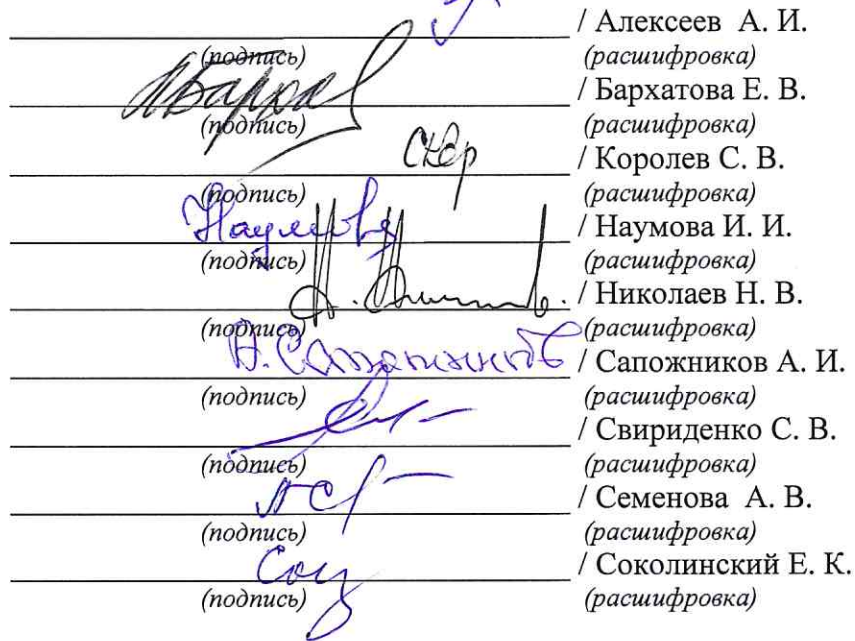 / Алексеев А. И.
(подпись) (расшифровка)
/ Бархатова Е. В.
(подпись) (расшифровка)
/ Королев С. В.
(подпись) (расшифровка)
Наумова / Наумова И. И.
(подпись) (расшифровка)
/ Николаев Н. В.
(подпись) (расшифровка)
А. Сапожников / Сапожников А. И.
(подпись) (расшифровка)
/ Свириденко С. В.
(подпись) (расшифровка)
/ Семенова А. В.
(подпись) (расшифровка)
/ Соколинский Е. К.
(подпись) (расшифровка)